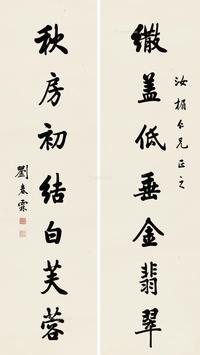 汝楫仁兄正之
繖盖低垂金翡翠
秋房初结白芙蓉
劉春霖